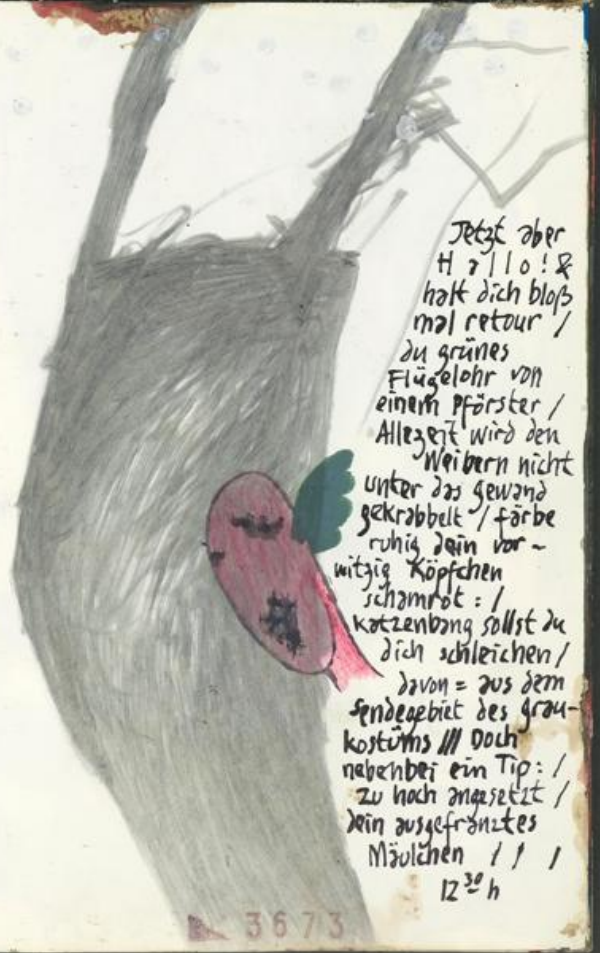 Jetzt aber
Hallo! &
halt dich bloß
mal retour /
du grünes
Flügelohr von
einem Pförster /
Allezeit wird den
Weibern nicht
unter das gewand
gekrabbelt / färbe
ruhig dein vor-
witzig Köpfchen
schamrot : /
katzenbang sollst du
dich schleichen /
davon = aus dem
Sendegebiet des grau-
kostüms /// Doch
nebenbei ein Tip : /
zu hoch angesetzt /
dein ausgefranztes
Mäulchen / / /
12 30 h
3673